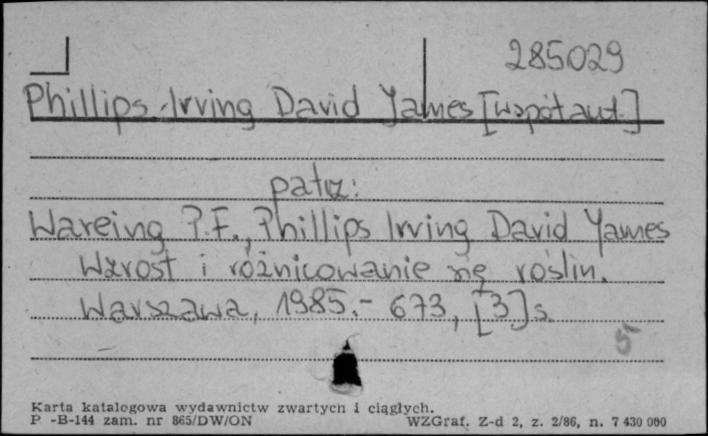 285029
Phillips Irving David Yames [współaut.]
patrz:
Wareing P.F., Phillips Irving David Yames
Wzrost i różnicowanie się roślin.
Warszawa, 1985.- 673, [3] s.
Karta katalogowa wydawnictw zwartych i ciągłych.
P -B-144 zam. nr 865/DW/ON WZGraf. Z-d 2, z. 2/86, n. 7 430 000